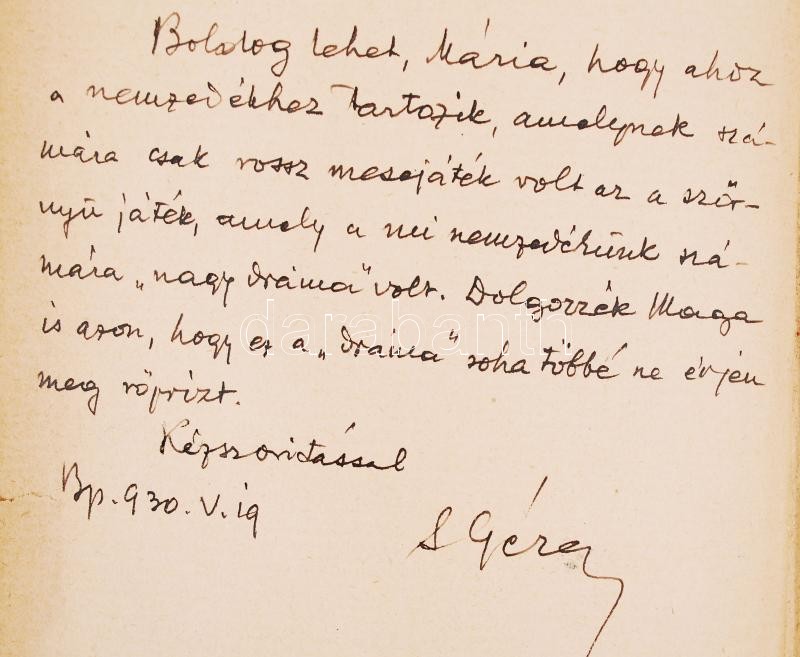 Boldog lehet, Mária, hogy ahoz
a nemzedékhez tartozik, amelynek szá-
mára csak rossz mesejáték volt az a ször-
nyü játék, amely a mi nemzedékünk szá-
mára „nagy dráma" volt. Dolgozzék Maga
is azon, hogy ez a „dráma" soha többé ne érjen
meg röprizt.
Kézszoritással
Bp. 930. V. 19
S Géza
darabanth